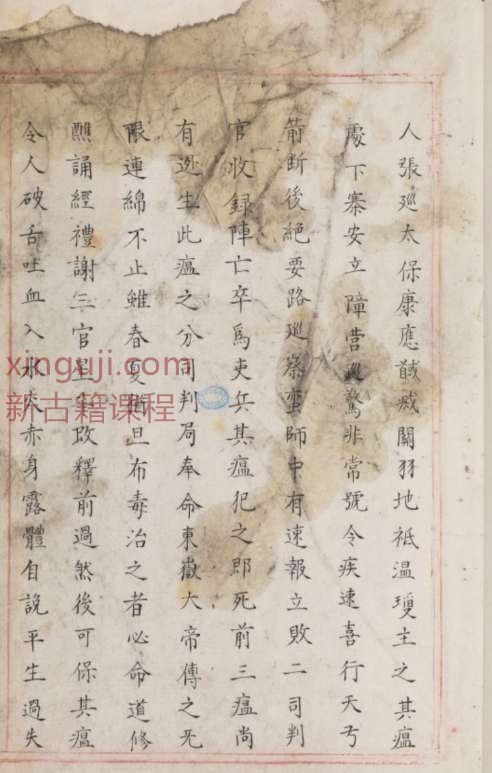 人張廵太保康應馘咸關羽地祗温瓊主之其瘟
處下寨安立障營廵警非常號令疾速喜行天弓
箭断後絶要路廵察蛮師中有速報立敗二司判
官收録陣亡卒爲吏兵其瘟犯之即死前三瘟尚
有逃生此瘟之分司判局奉命東嶽大帝傳之无
限連綿不止雖春夏旦布毒治之者必命道修
醮誦經禮謝三官星攺釋前過然後可保其瘟
令人破舌吐血入水赤身露體自説平生過失
xinguji.com
新古籍课程